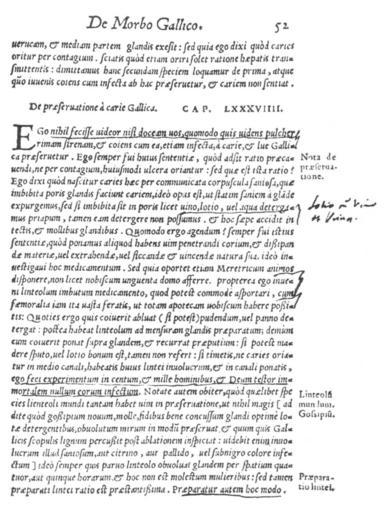 De Morbo Gallico. 52
uerucam, & mediam partem glandis exesit: sed quia ego dixi quòd caries
oritur per contagium. sciatis quòd etiam oriri solet ratione hepatis tran-
smittentis: dimittamus hanc secundam speciem loquamur de prima, atque
quò iuuenis coiens cum infecta ab hac præseruetur, & cariem non sentiat.
De præseruatione à carie Gallica. CAP. LXXXVIIII.
EGo nihil fecisse uideor nisi doceam uos, quomodo quis uidens pulcher
rimam sirenam, & coiens cum ea, etiam infecta, à carie, & lue Galli
ca præseruetur. Ego semper fui huius sententiæ, quòd adsit ratio præca
uendi, ne per contagium, huiusmodi ulcera oriantur: sed quæ est ista ratio?
Ego dixi quòd nascitur caries hæc per communicata corpuscula saniosa, quæ
imbibita poris glandis faciunt cariem, ideò opus est, ut statim saniem à glande
expurgemus, sed si imbibita sit in poris licet uino, lotio, uel aqua deterge
mus priapum, tamen eam detergere non possumus, & hoc sæpe accidit in
tectis, & mollibus glandibus. Quomodo ergo agendum? semper fui istius
sententiæ, quòd ponamus aliquod habens uim penetrandi corium, & dissipan
dæ materiæ, uel extrahendæ, uel siccandæ & uincendæ natura sua. ideò in-
uestigaui hoc medicamentum. Sed quia oportet etiam Meretricum animos
disponere, non licet nobiscum unguenta domo afferre. propterea ego inue
ni linteolum imbutum medicamento, quod potest commode asportari, cum
fæmoralia iam ita uasta feratis, ut totam apotecam uobiscum habere possi-
tis: Quoties ergo quis coiuerit abluat (si potest) pudendum, uel panno de-
tergat: postea habeat linteolum ad mensuram glandis præparatum; demum
cum coiuerit ponat supra glandem, & recurrat præputium: si potest ma-
dere sputo, uel lotio bonum est, tamen non refert: si timetis, ne caries oria-
tur in medio canali, habeatis huius lintei inuolucrum, & in canali ponatis,
ego feci experimentum in centum, & mille hominibus, & Deum testor im-
mortalem nullum eorum infectum. Notate autem obiter, quòd quælibet spe
cies lienteoli mundi tantam habet uim in præseruatione, ut nihil magis [ad
dite quòd gossipium nouum, molle, fidibus bene concussum glandi optimè lo-
tæ detergentibus, obuolutum mirum in modū præseruat, & quum quis Gal-
licos scopulis lignum percussit post ablationem inspiciat: uidebit enim inuo-
lucrum illud saniosum, aut citrino, aut pallido, uel subnigro colore infe-
ctum] ideò semper quis paruo linteolo obuolutas glandem per spatium qua-
tuor, aut quinque horarum, & hoc non est molestum mulieribus: sed tamen
præparati lintei ratio est præstantissima. Præparatur autem hoc modo.
Nota de
præserua-
tione.
Linteolū
mun lum.
Gossipiū.
Præpara-
tio lintei.